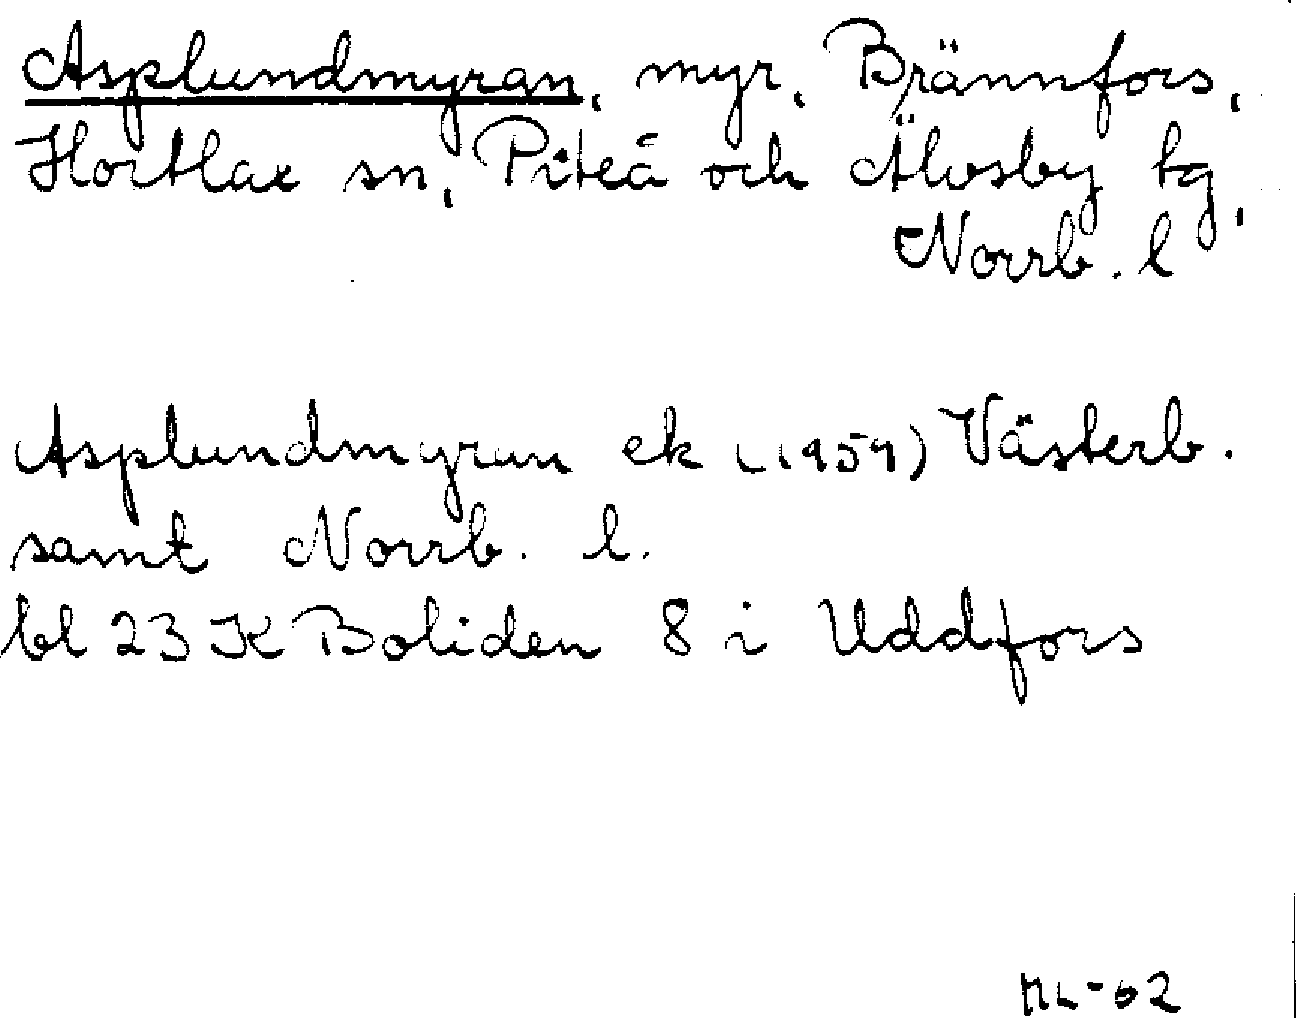 Asplundmyran, myr, Brännfors,
Hortlax sn, Piteå och Älvsby tg,
Norrb. l
Asplundmyran ek (1959) Västerb.
samt Norrb. l.
bl 23 K Boliden 8 i Uddfors
ML-62